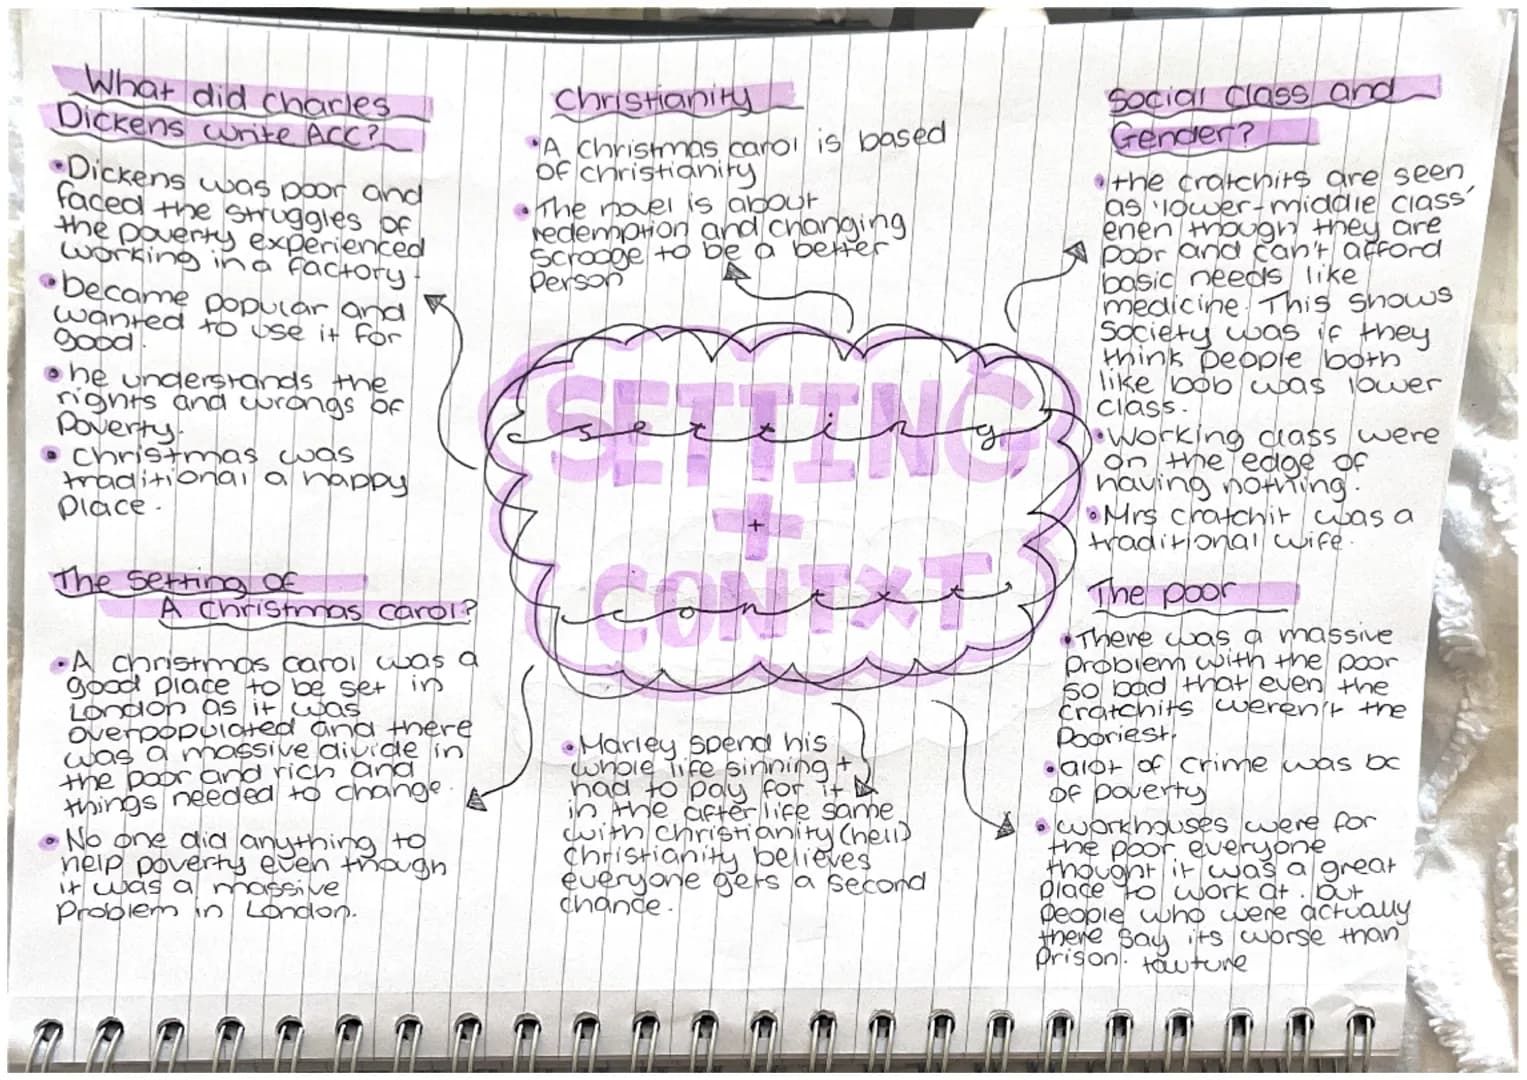 What did charles
Dickens write ACC?
•Dickens was poor and
faced the struggles of
the poverty experienced
working in a factory.
•became popular and
wanted to use it for
good.
•he understands the
rights and wrongs of
Poverty.
• christmas was
traditional a happy
place.
The Setting of
A Christmas carol?
•A christmas carol was a
good place to be set in
London as it was
overpopulated and there
was a massive divide in
the poor and rich and
things needed to change.
• No one did anything to
help poverty even though
it was a massive
problem in London.
Christianity
•A christmas carol is based
of christianity
•The novel is about
redemption and changing
Scrooge to be a better
Person
SETTING
setting
+
CONTXT
contxt
•Marley spend his
whole life sinning +
had to pay for it
in the after life same
with christianity (hell)
christianity believes
everyone gets a second
chance.
Social Class and
Gender?
•the cratchits are seen
as 'lower-middle class'
even though they are
poor and can't afford
basic needs like
medicine. This shows
Society was if they
think people both
like bob was lower
class.
•Working class were
on the edge of
having nothing.
•Mrs cratchit was a
traditional wife.
The poor
•There was a massive
problem with the poor
so bad that even the
cratchits weren't the
Pooriest.
•alot of crime was bc
of poverty
• workhouses were for
the poor everyone
thought it was a great
place to work at. but
people who were actually
there say its worse than
prison. tawture